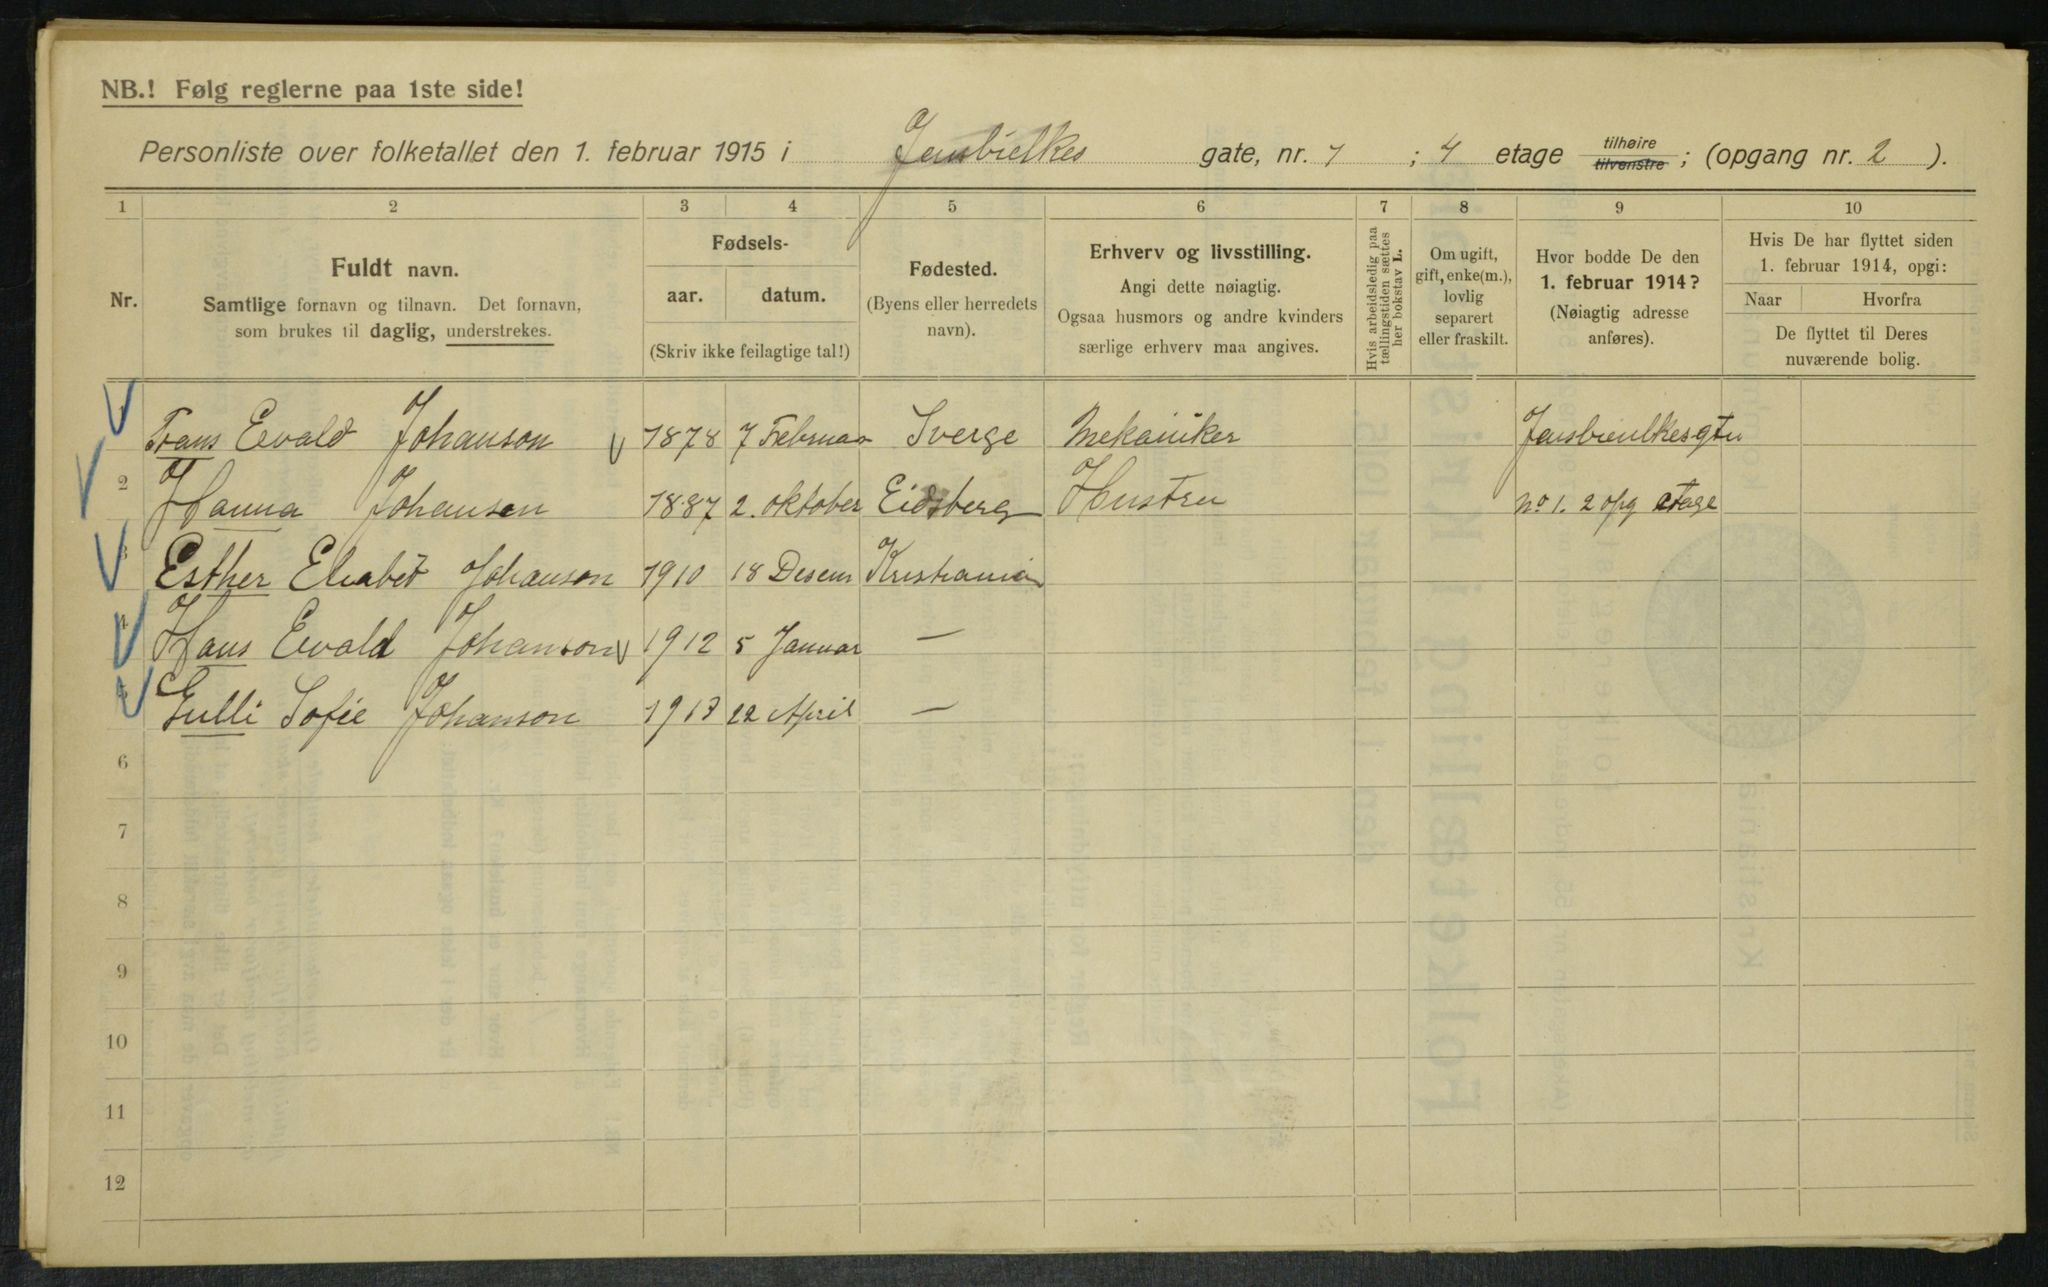 NB.! Følg reglerne paa 1ste side!
Personliste over folketallet den 1. februar 1915 i Jensbielkes gate, nr. 1 ; 4 etage tilhøire tilvenstre ; (opgang nr. 2 ).
1 2 3 4 5 6 7 8 9 10
Nr.
Fuldt navn.
Samtlige fornavn og tilnavn. Det fornavn,
som brukes til daglig, understrekes.
Fødsels-
aar. datum.
(Skriv ikke feilagtige tal!)
Fødested.
(Byens eller herredets
navn).
Erhverv og livsstilling.
Angi dette nøiagtig.
Ogsaa husmors og andre kvinders
særlige erhverv maa angives.
Hvis arbeidsledig paa
tællingstiden sættes
her bokstav L.
Om ugift,
gift, enke(m.),
lovlig
separert
eller fraskilt.
Hvor bodde De den
1. februar 1914?
(Nøiagtig adresse
anføres).
Hvis De har flyttet siden
1. februar 1914, opgi:
Naar Hvorfra
De flyttet til Deres
nuværende bolig.
1 Frans Ewald Johanson 1878 7 Februar Sverge Mekaniker Jensbieulkesgtn
2 Hanna Johanson 1887 2. oktober Eidsberg Hustru No 1. 2 opg etage
3 Esther Elisabet Johanson 1910 18 Desem Kristiania
4 Hans Ewald Johanson 1912 5 Januar —
5 Gulli Sofie Johanson 1913 22 April —
6
7
8
9
10
11
12